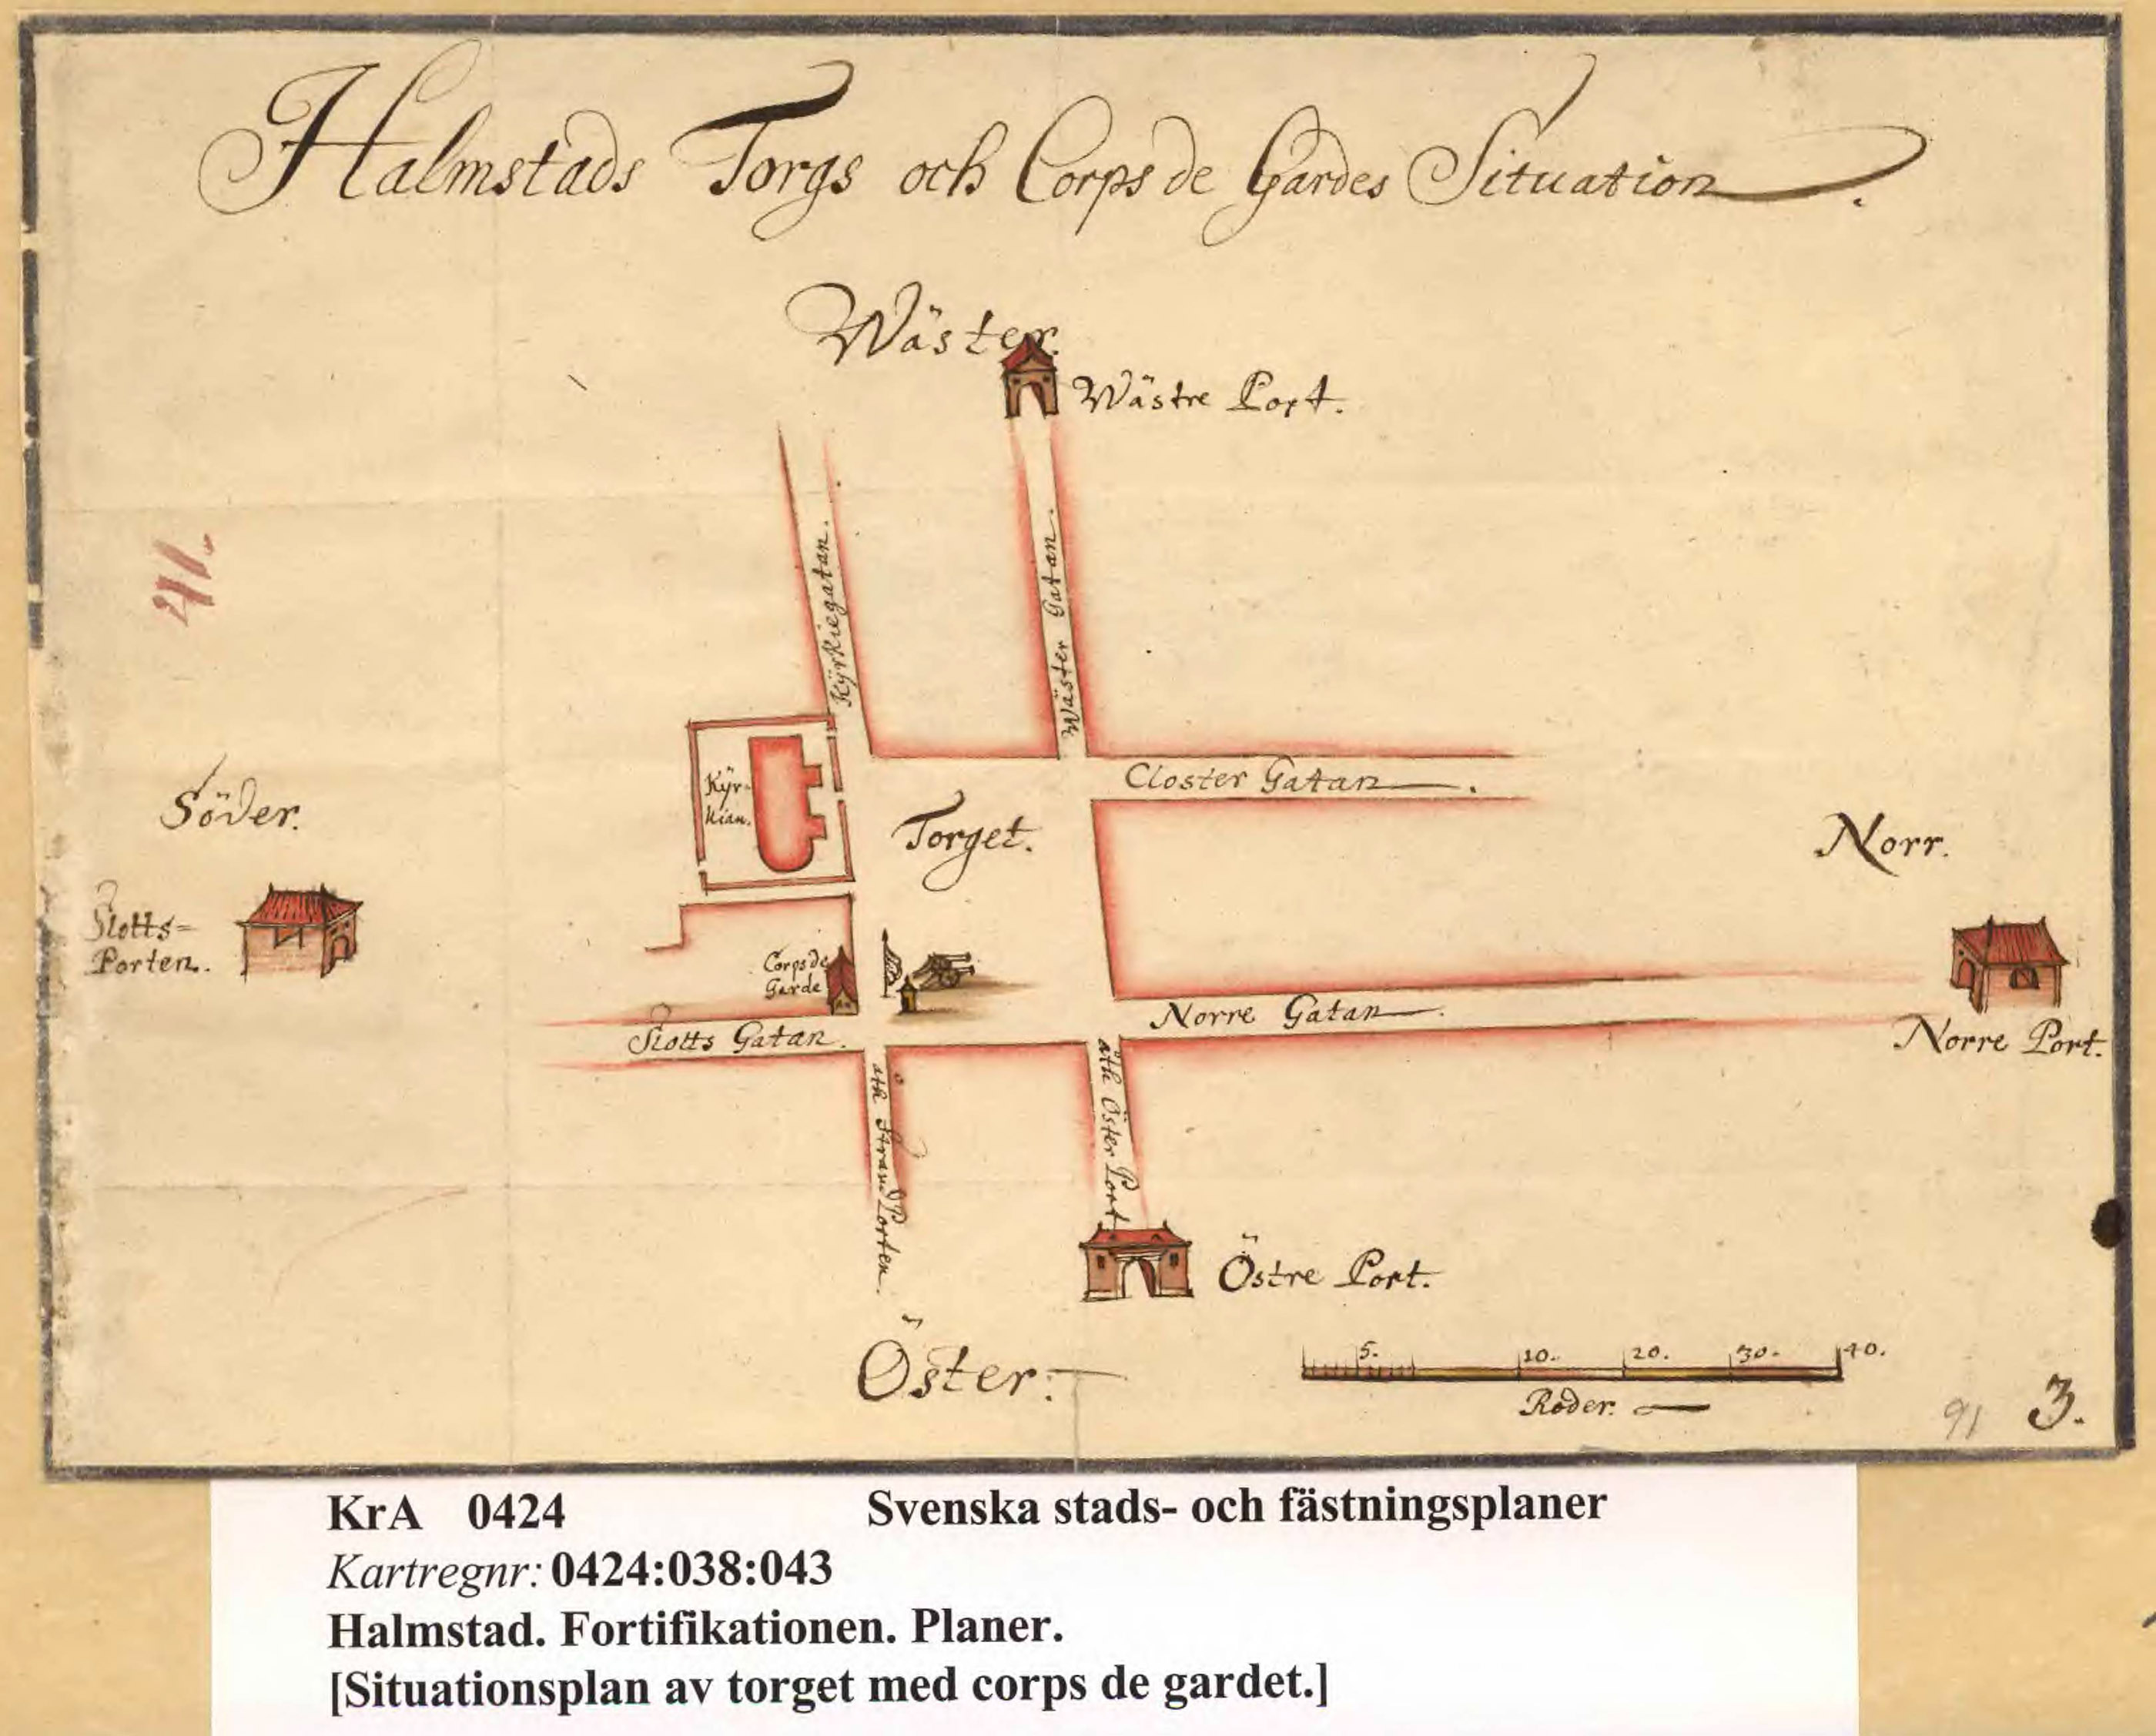 Halmstads Torgs och Corps de Gardes Situation.
Wäster.
Wästre Port.
41.
Kÿrkiegatan.
Wäster Gatan.
Closter Gatan.
Söder.
Kÿr-
kian.
Torget.
Norr.
Slotts=
Porten.
Corps de
Garde
Slotts Gatan.
Norre Gatan.
Norre Port.
åth Strand Porten.
åth Öster Port
Östre Port.
Öster.
5. 10. 20. 30. 40.
Roder.
91 3.
KrA 0424 Svenska stads- och fästningsplaner
Kartregnr: 0424:038:043
Halmstad. Fortifikationen. Planer.
[Situationsplan av torget med corps de gardet.]